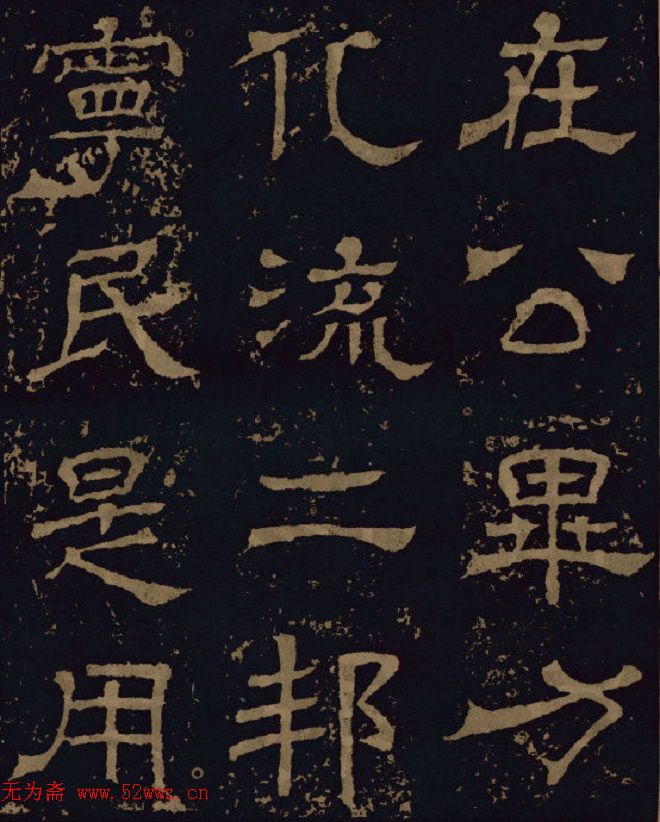 在公畢方
化流二邦
寧民是用
无为斋 www.52wwz.cn